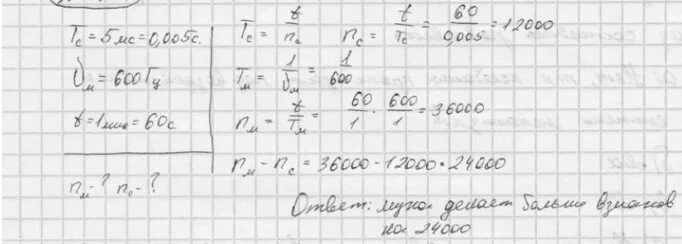 Tс = 5мс = 0,005с.
νм = 600Гц
t = 1мин = 60с
nм - ? nс - ?
Tс = t/nс   nс = t/Tс = 60/0,005 = 12000
Tм = 1/νм = 1/600
nм = t/Tм = 60/1 · 600/1 = 36000
nм - nс = 36000 - 12000 = 24000
Ответ: муха делает больше взмахов
на 24000